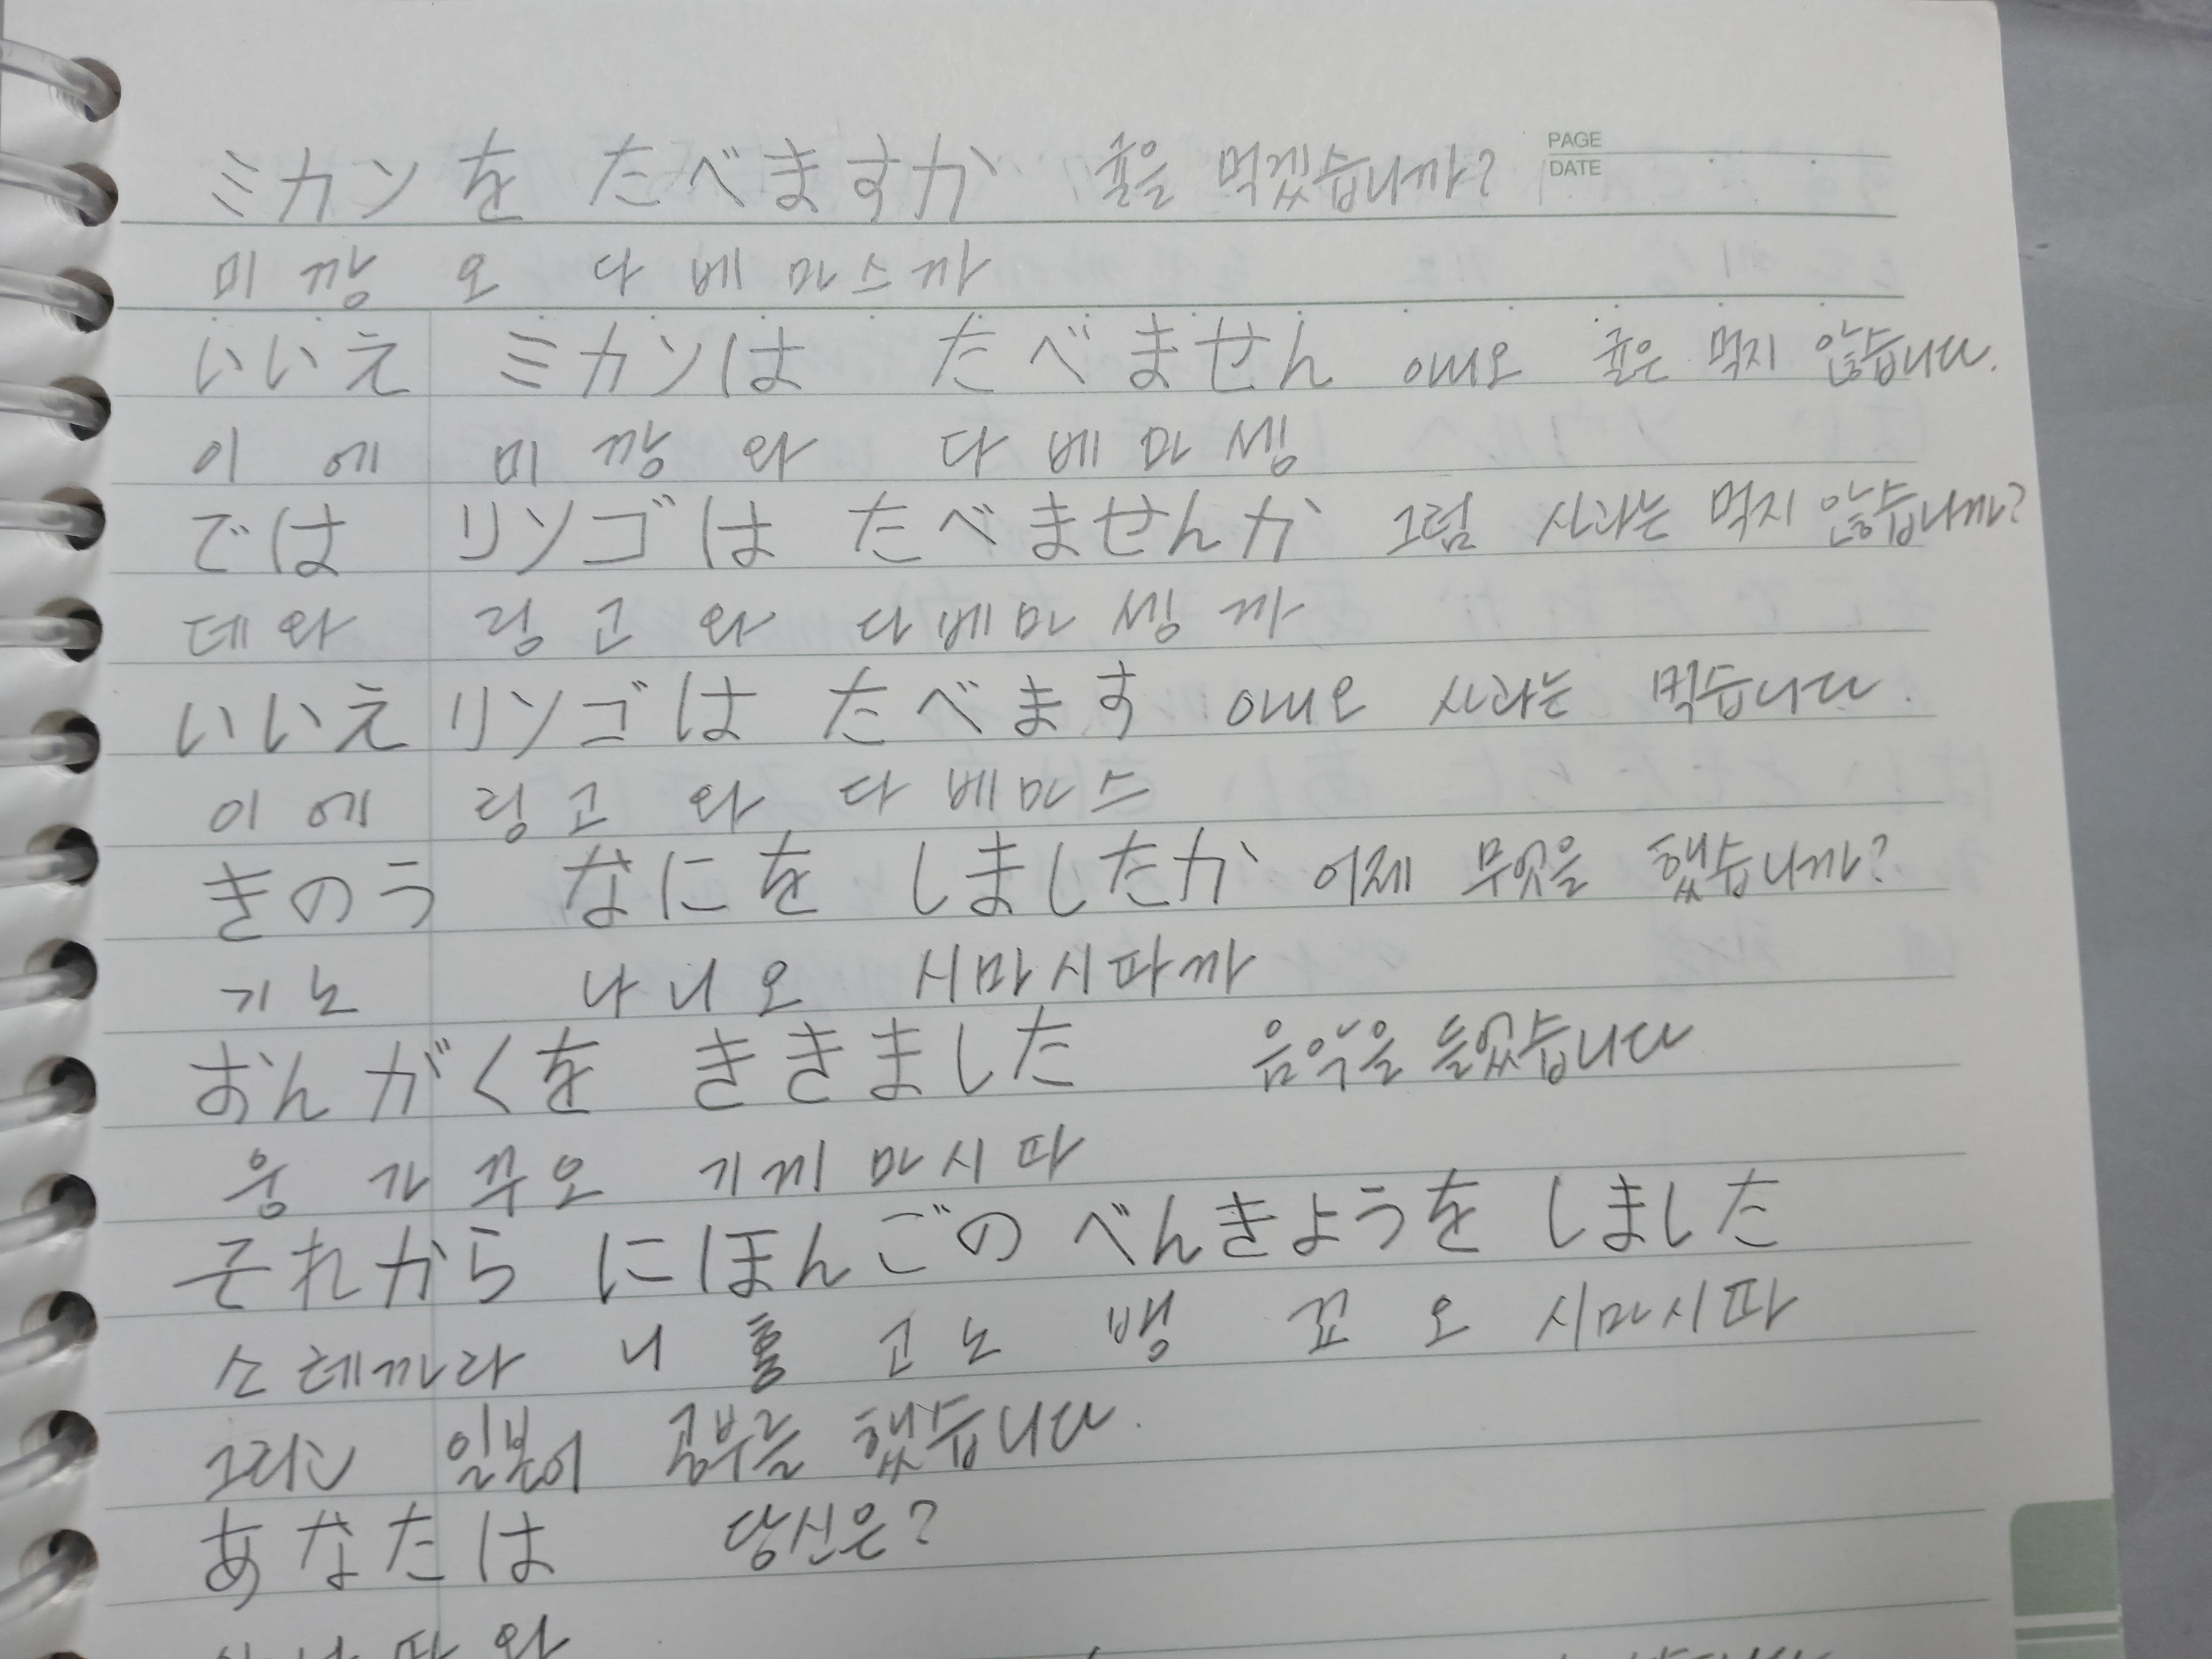 PAGE
DATE
ミカンを たべますか 귤을 먹겠습니까?
미 깡 오 다 베 마 스 까
いいえ ミカンは たべません 아니오 귤은 먹지 않습니다.
이 에 미 깡 와 다 베 마 셍
では リンゴは たべませんか 그럼 사과는 먹지 않습니까?
데 와 링 고 와 다 베 마 셍 까
いいえ リンゴは たべます 아니오 사과는 먹습니다.
이 에 링 고 와 다 베 마 스
きのう なにを しましたか 어제 무엇을 했습니까?
기 노 나 니 오 시마시따까
おんがくを ききました 음악을 들었습니다
옹 가 꾸 오 기 끼 마 시 따
それから にほんごの べんきようを しました
소 레 까 라 니 홍 고 노 뱅 꾜 오 시마시따
그리고 일본어 공부를 했습니다.
あなたは 당신은?